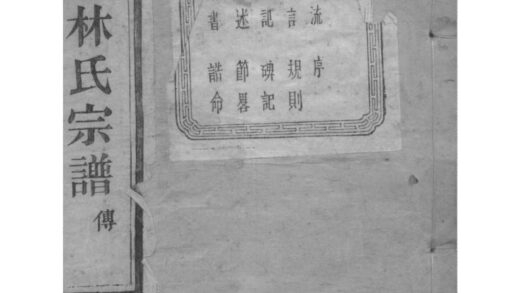 林氏宗譜 傳
流 序
言 規則
記 碑記
述 節畧
書 誥命